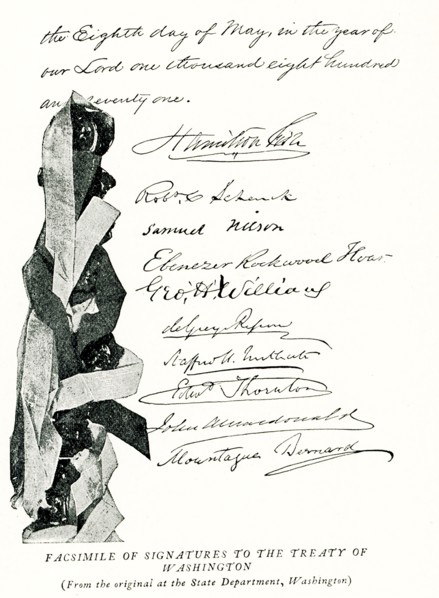 the Eighth day of May, in the year of
our Lord one thousand eight hundred
and seventy one.
Hamilton Fish
Robt. C. Schenck
Samuel Nelson
Ebenezer Rockwood Hoar
Geo. H. Williams
de Grey & Ripon
Stafford H. Northcote
Edwd. Thornton
John A Macdonald
Mountague Bernard
FACSIMILE OF SIGNATURES TO THE TREATY OF
WASHINGTON
(From the original at the State Department, Washington)